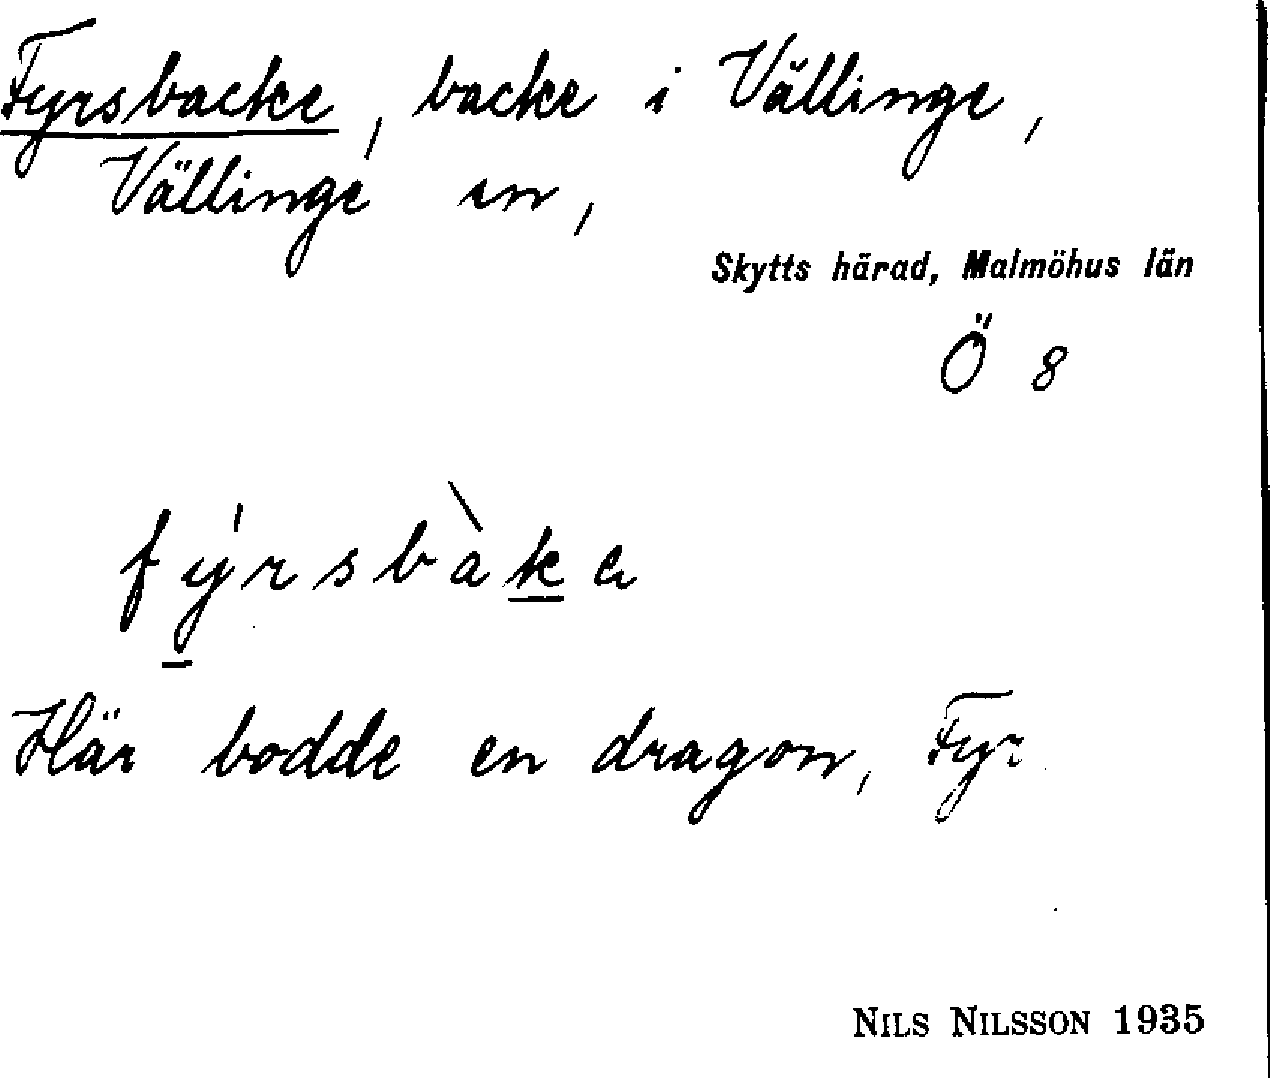 Fyrsbacke, backe i Vällinge,
Vällinge en,
Skytts härad, Malmöhus län
Ö 8
fý̱rsbàḵa
Här bodde en dragon, Fyr
NILS NILSSON 1935